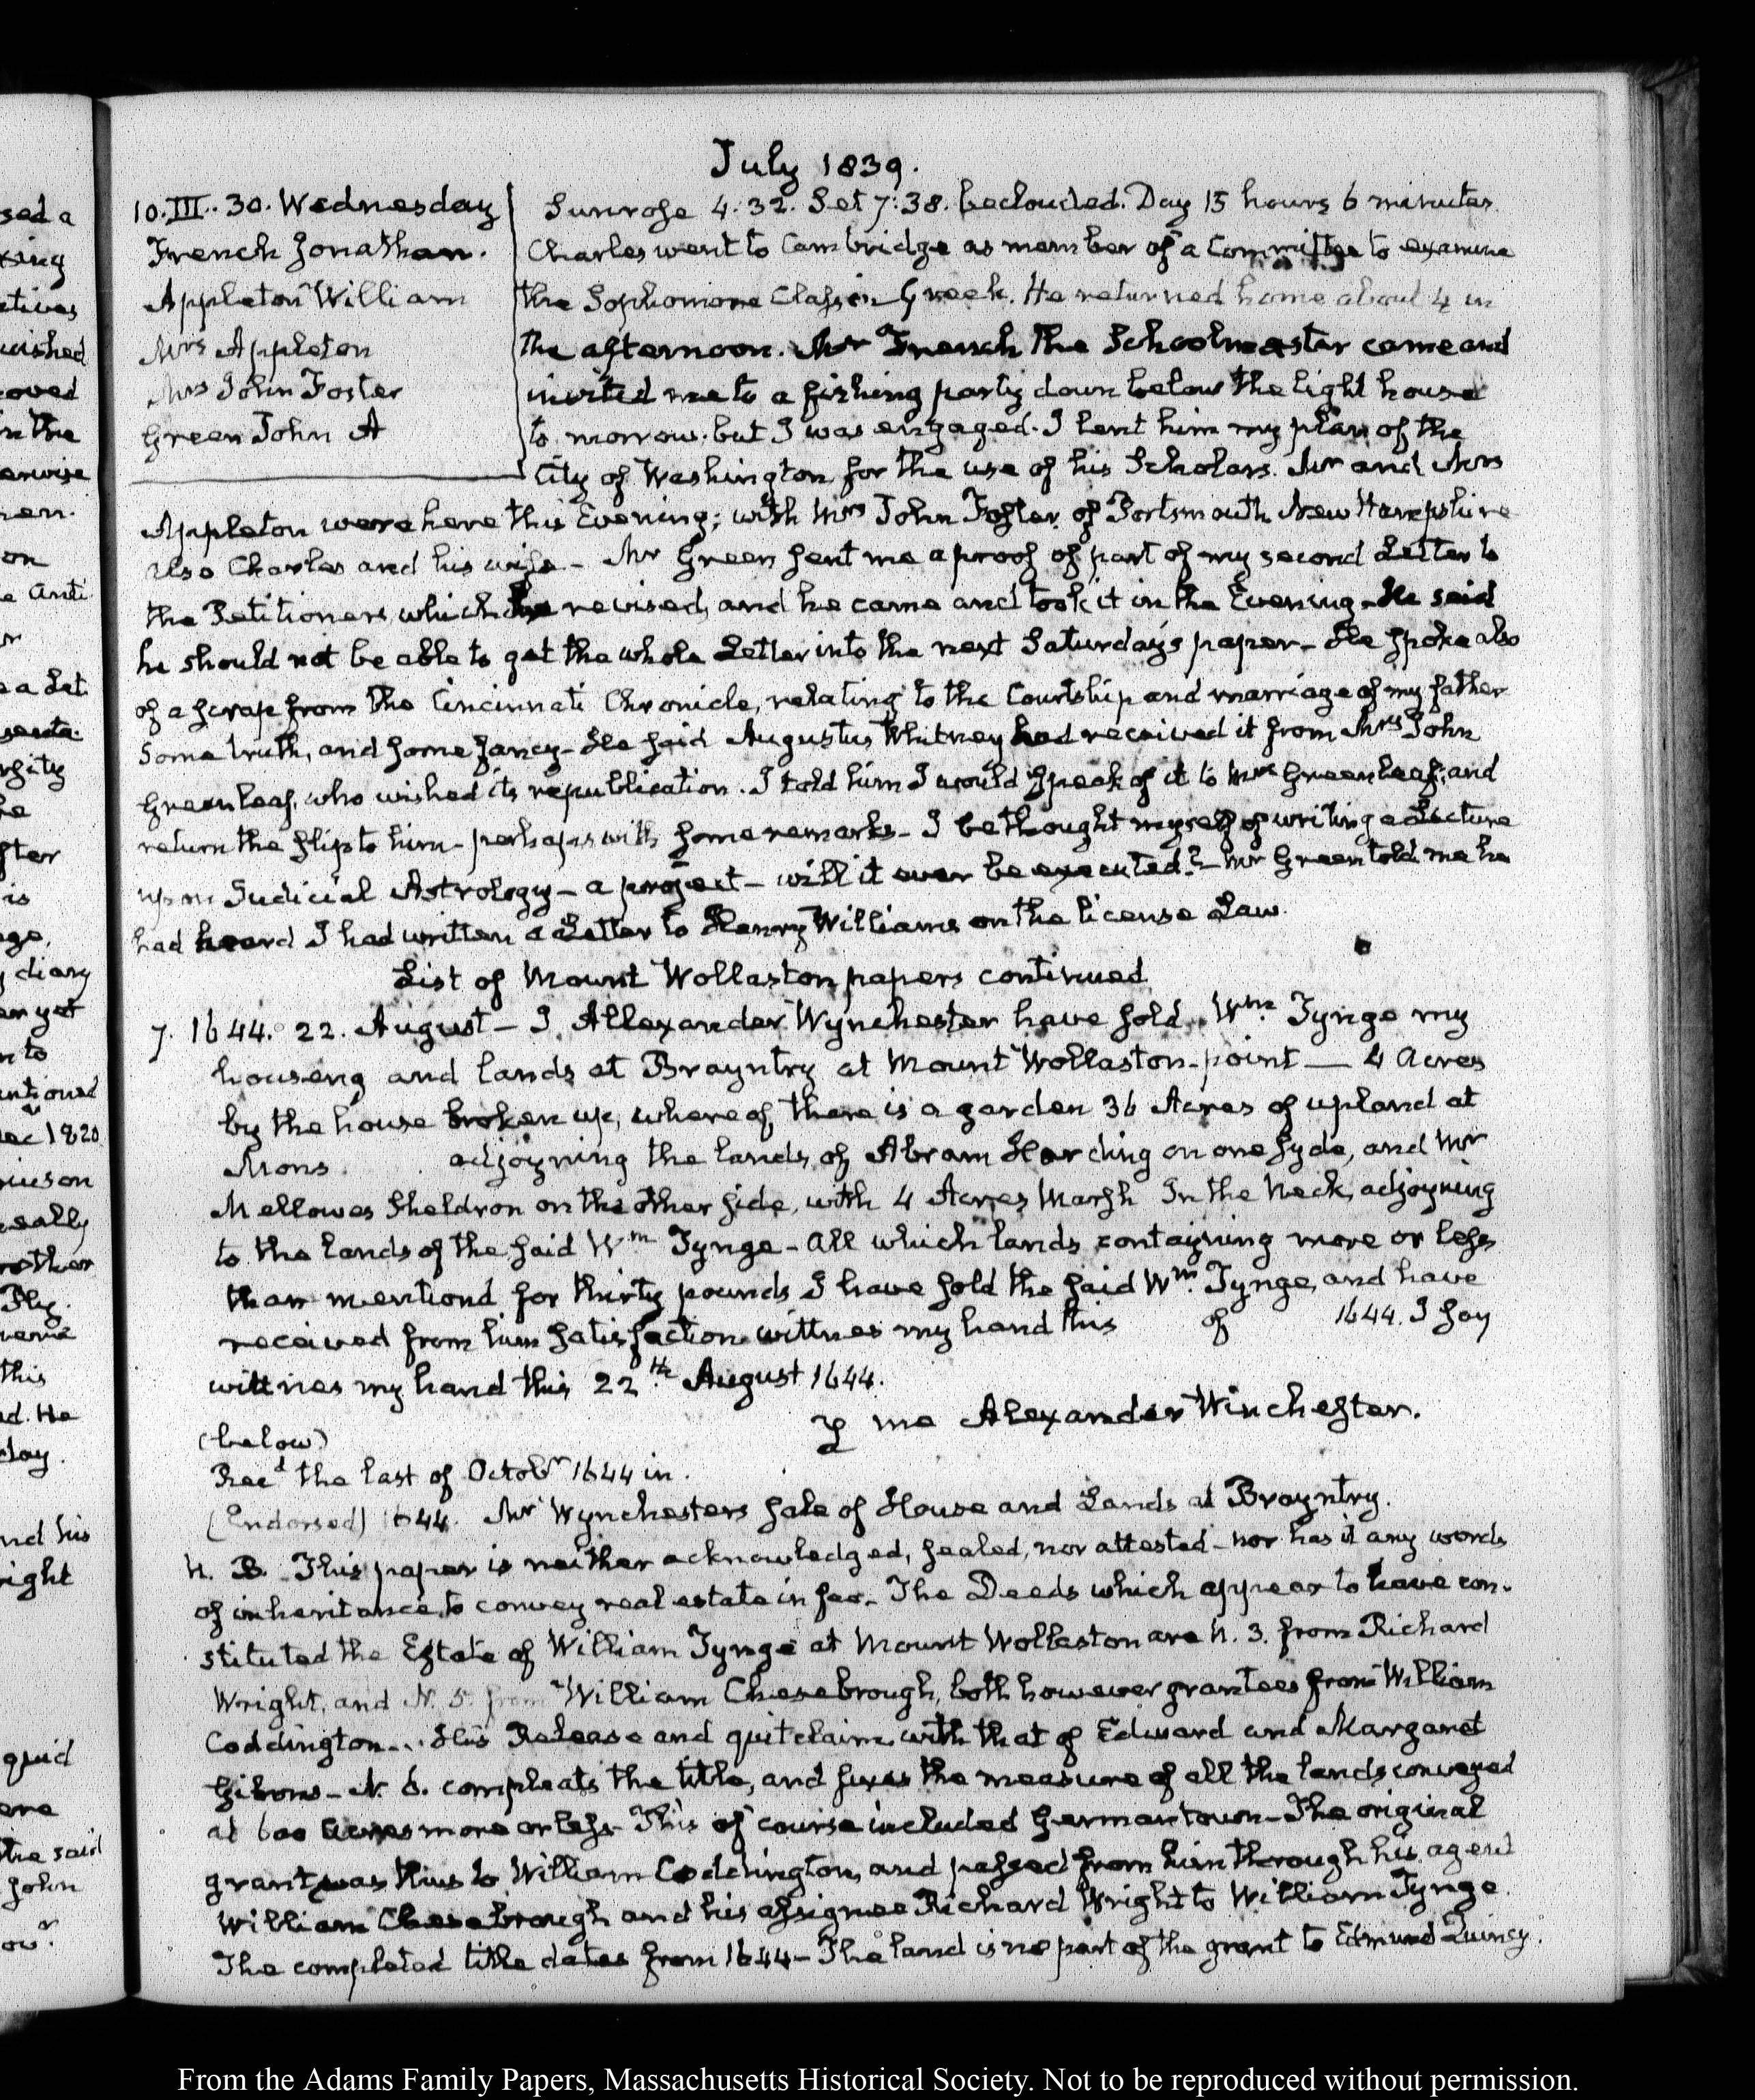 July 1839.
10. III. 30. Wednesday
French Jonathan.
Appleton William
Mrs Appleton
Mrs John Foster
Green John A
Sunrose 4:32. Set 7:38. beclouded. Day 15 hours 6 minutes.
Charles went to Cambridge as member of a Committee to examine
the Sophomore Class in Greek. He returned home about 4 in
the afternoon. Mr French the Schoolmaster came and
invited me to a fishing party down below the light house
to morrow. but I was engaged. I lent him my plan of the
City of Washington for the use of his Scholars. Mr and Mrs
Appleton were here this Evening; with Mrs John Foster of Portsmouth New Hampshire
also Charles and his wife - Mr Green sent me a proof of part of my second Letter to
the Petitioners, which revised, and he came and took it in the Evening. He said
he should not be able to get the whole Letter into the next Saturday's paper - He spoke also
of a scrap from the Cincinnati Chronicle, relating to the Courtship and marriage of my father
Some truth, and some fancy - He said Augustus Whitney had received it from Mrs John
Greenleaf, who wished its republication. I told him I would speak of it to Mrs Greenleaf, and
return the slip to him - perhaps with some remarks - I bethought myself of writing a Lecture
upon Judicial Astrology - a project - will it ever be executed? - Mr Green told me he
had heard I had written a Letter to Henry Williams on the license Law.
List of Mount Wollaston papers continued
7. 1644. 22. August - I Allexander Wynchester have sold Wm. Tynge my
houseng and lands at Brayntry at Mount Wollaston-point — 4 Acres
by the house broken up, whereof, there is a garden 36 Acres of upland at
Mons. adjoyning the lands of Abram Harding on one syde, and Mr
Mellowes Sheldron on the other side, with 4 Acres Marsh In the Neck, adjoyning
to the lands of the said Wm Tynge - All which lands contayning more or less
than mentiond for thirty pounds I have sold the said Wm. Tynge, and have
received from him satisfaction wittnes my hand this of 1644. I say
wittnes my hand this 22th August 1644.
me Alexander Winchester.
(below)
Recd the last of Octobr 1644 in.
(Endorsed) 1644. Mr Wynchesters sale of House and Lands at Brayntry.
N. B. - This paper is neither acknowledged, sealed, nor attested - nor has it any words
of inheritance, to convey real estate in fee - The Deeds which appear to have con-
stituted the Estate of William Tynge at Mount Wollaston are N. 3. from Richard
Wright, and N. 5. from William Chesebrough, both however grantees from William
Coddington... His Release and quitclaim with that of Edward and Margaret
Gibons - N. 6. compleats the title, and fixes the measure of all the lands conveyed
at 600 Acres more or less - This of course included Germantown - The original
grant was thus to William Coddington, and passed from him through his agent
William Chesebrough and his assignee Richard Wright to William Tynge.
The completed title dates from 1644 - The land is no part of the grant to Edmund Quincy.
From the Adams Family Papers, Massachusetts Historical Society. Not to be reproduced without permission.